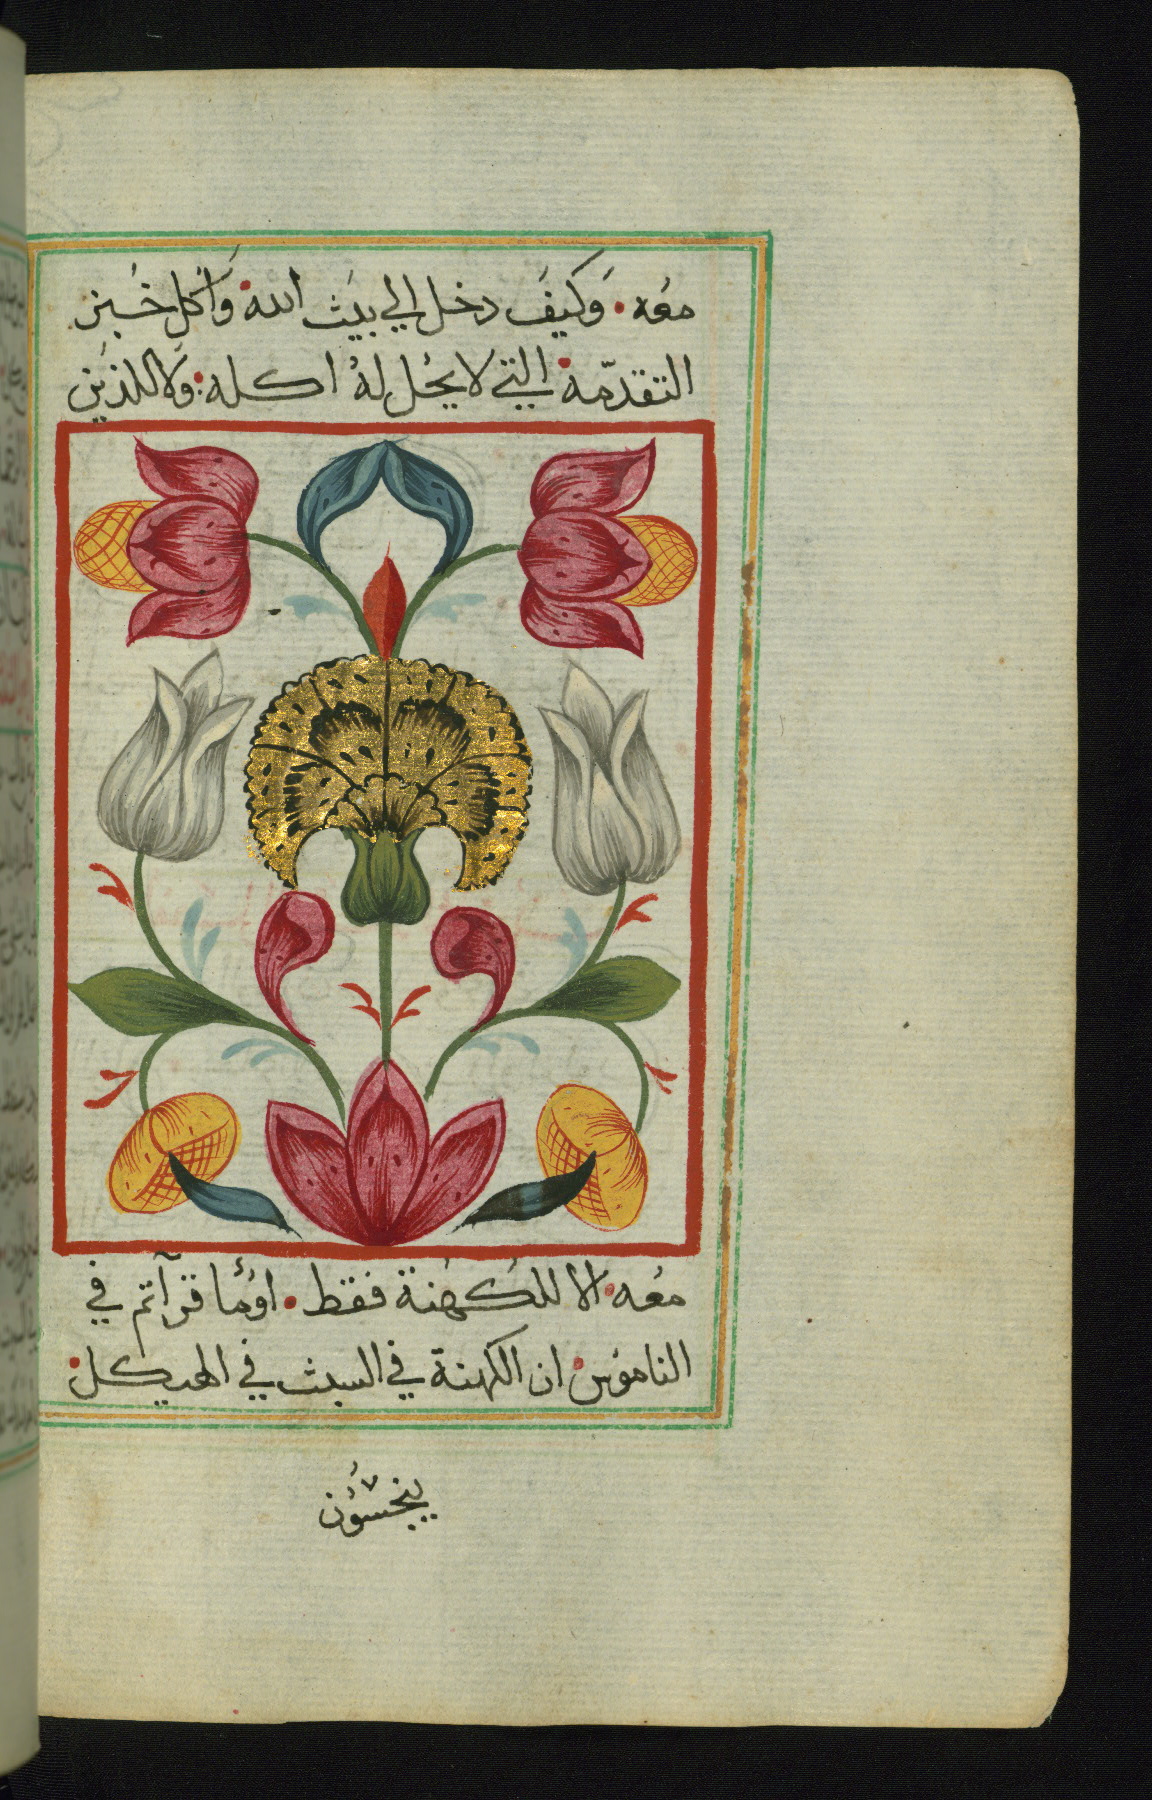 معه • وَكيفَ دخل الي بيَث الله • وَاكل خُبز
التقدمّة • التي لا يحُل لهُ اكله • ولاللذيَن
معُه • الا للكهَنة فقط • اوُما قرآتم في
الناموُس • ان الكهنة في السبث في الهيكل •
ينجسُوُن